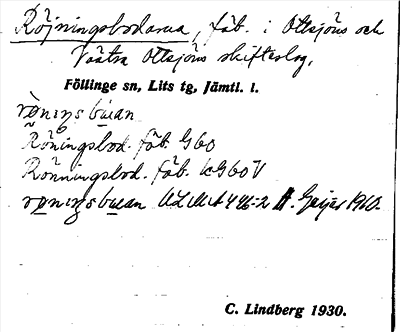 Röjningsbodarna, fäb. i Ottsjöns och
Västra Ottsjöns skifteslag.
Föllinge sn, Lits tg, Jämtl. l.
Röningsbod. fäb. G60
Rönningsbod. fäb. kG60V
ULMA 446:2 H. Geijer 1910.
C. Lindberg 1930.